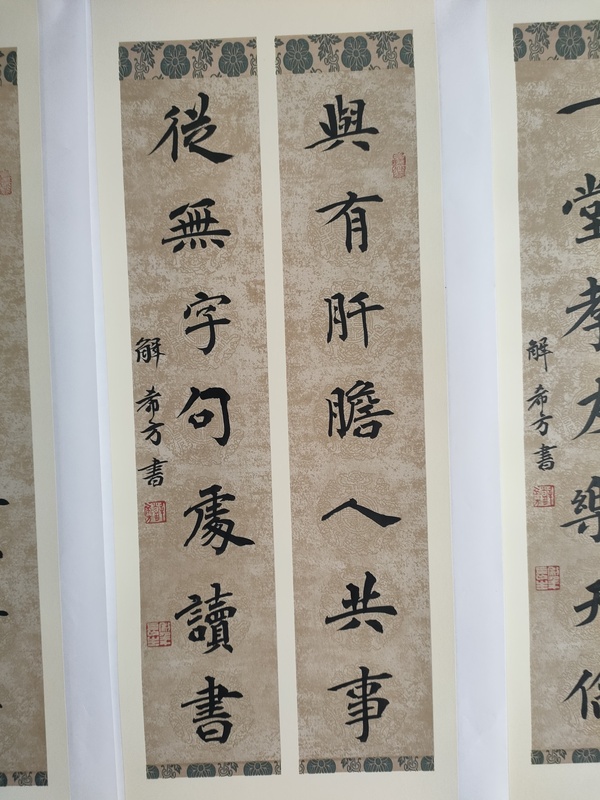 一堂孝友樂天倫
解希方書
與有肝膽人共事
從無字句處讀書
解希方書